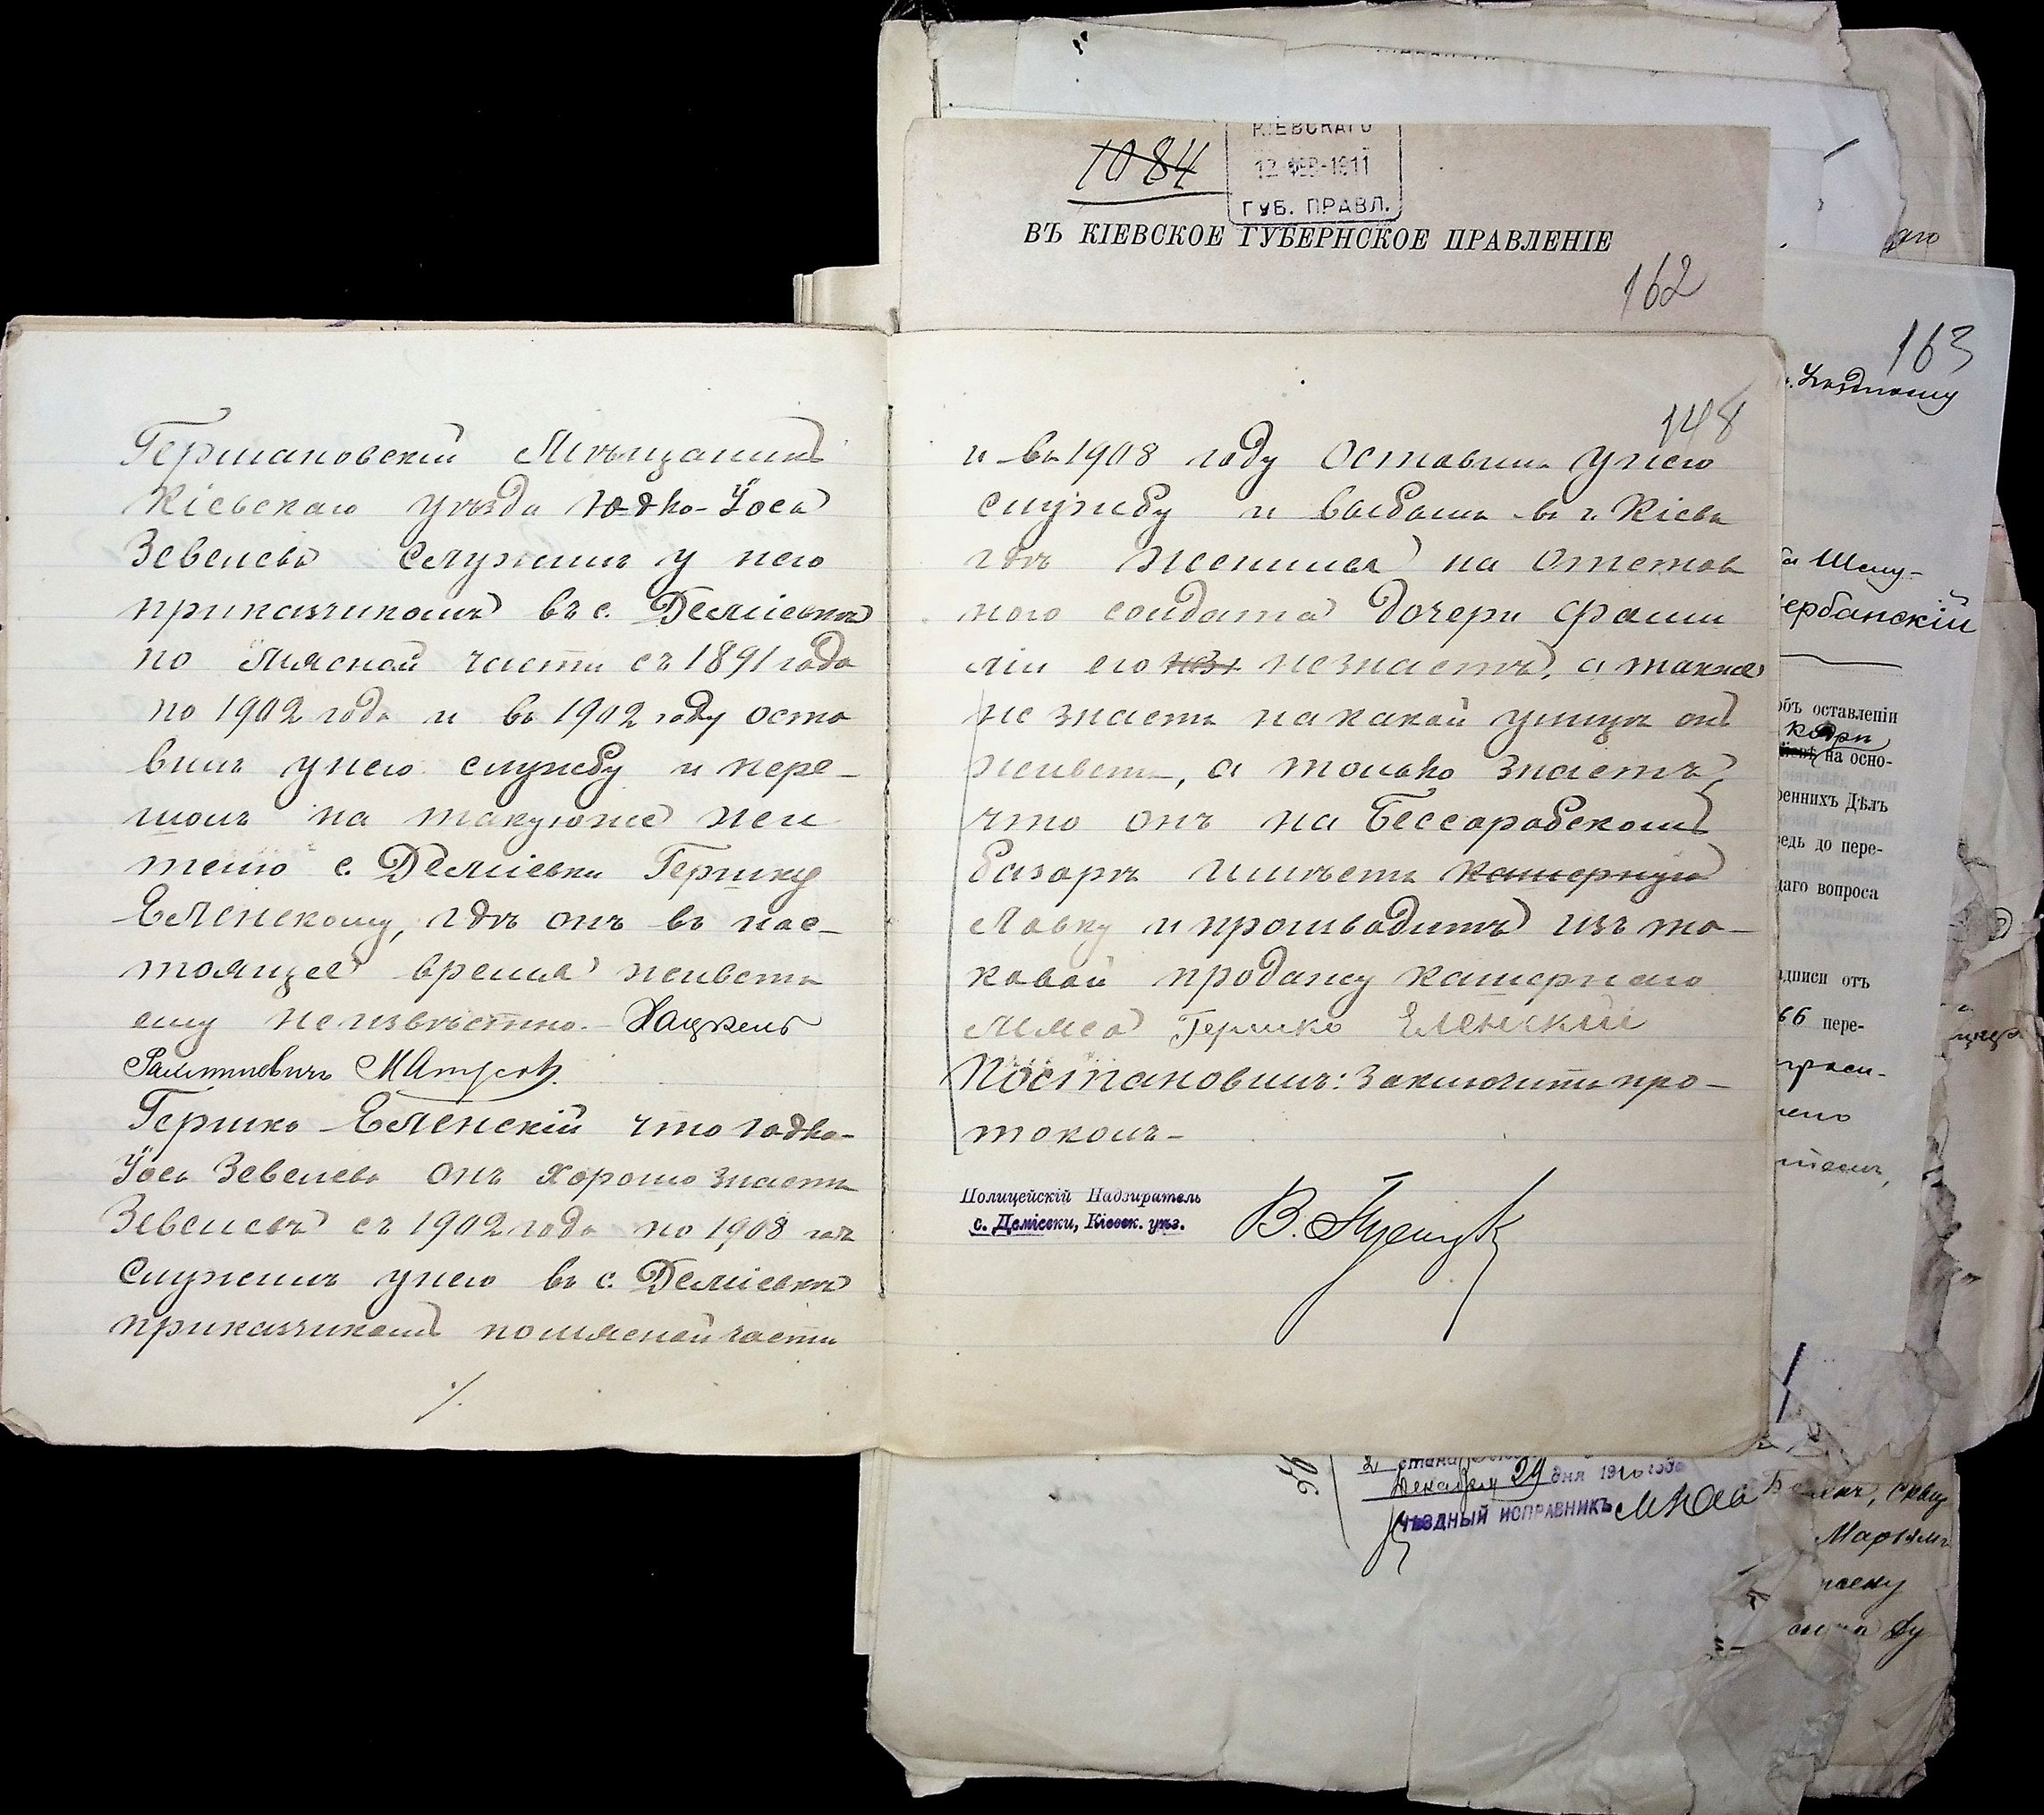 Германовскій Мѣщанинъ
Кіевскаго уѣзда Юдко-Йось
Зевелевъ служилъ у него
приказчикомъ въ с. Деміевкѣ
по мясной части съ 1891 года
по 1902 годъ и въ 1902 году оста
вилъ у него службу и пере-
шолъ на такуюже к жи
телю с. Деміевки Гершку
Еленскому, гдѣ онъ въ нас-
тоящее время живетъ
ему неизвѣстно.- Хацкель

Гершко Еленскій что Юдко-
Йось Зевелевъ онъ хорошо знаетъ
Зевелевъ съ 1902 года по 1908 годъ
служилъ у него въ с. Деміевкѣ
приказчикомъ по мясной части
/.
1084
КІЕВСКАГО
12 ФЕВ-1911
ГУБ. ПРАВЛ.
ВЪ КІЕВСКОЕ ГУБЕРНСКОЕ ПРАВЛЕНІЕ
162
148
и въ 1908 году оставилъ у него
службу и выбылъ въ г. Кіевъ
гдѣ женился на отстав
ного солдата дочери фами
ліи его незнаетъ, а также
не знаетъ на какой улицѣ онъ
живетъ, а только знаетъ,
что онъ на Бессарабскомъ
базарѣ имѣетъ кашерную
лавку и производитъ изъ та-
ковой продажу кашернаго
мяса Гершко Еленскій
Постановилъ: Заключить про-
токолъ-
Полицейскій Надзиратель
с. Деміевки, Кіевск. уѣз.
163
аго
ербанскій
объ оставленіи
на осно-
реннихъ Дѣлъ
редь до пере-
щаго вопроса
адписи отъ
66 пере-
Декабря 29 дня 1910 года
УѢЗДНЫЙ ИСПРАВНИКЪ